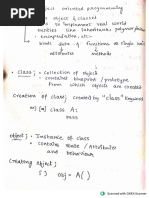 oriented programming
object & classes
to implement real world
entities like Inheritance, polymorphism
encapsulation, etc.
binds data & functions as single unit
& attributes methods
• Class :- Collection of object
• contains blueprint/prototype
from which objects are created
Creation of class, created by "class" keyword
class A:
pass
object :- Instance of class
• contains state/Attributes
and behaviour
Creating object
obj = A()
Scanned with OKEN Scanner